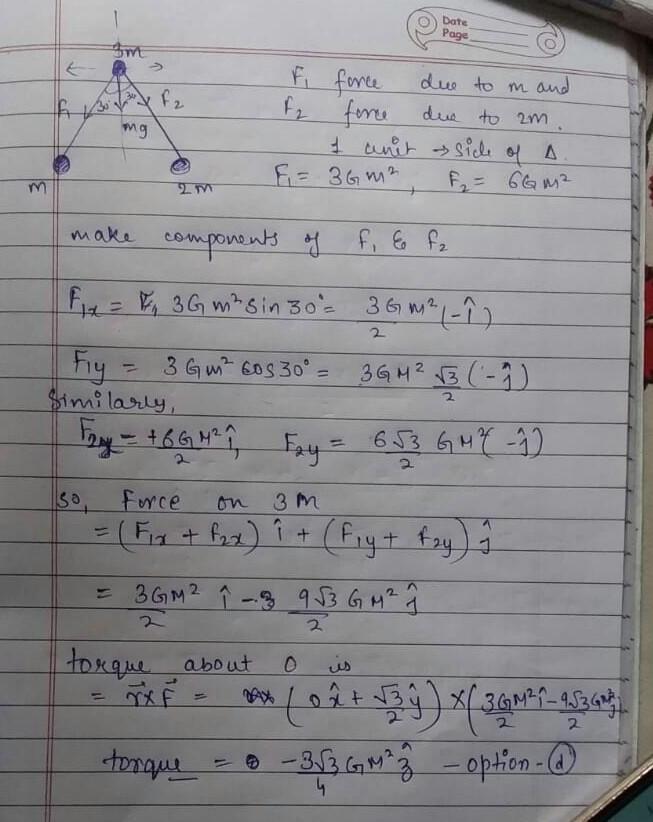 Date
Page
3m
F₁ 30° 30° F₂
mg
m 2m
F₁ force due to m and
F₂ force due to 2m.
1 unit → side of Δ.
F₁ = 3Gm², F₂ = 6GM²
make components of F₁ & F₂
F₁ₓ = 3Gm² sin 30° = 3GM²/2 (-î)
F₁y = 3Gm² cos 30° = 3GM² √3/2 (-ĵ)
Similarly,
= +6GM²/2 î, F₂y = 6√3/2 GM² (-ĵ)
so, Force on 3M
= (F₁ₓ + F₂ₓ) î + (F₁y + F₂y) ĵ
= 3GM²/2 î - 9√3/2 GM² ĵ
torque about O is
= r⃗×F⃗ = (0x̂ + √3/2 ŷ) × (3GM²/2 î - 9√3GM²/2 ĵ)
torque = -3√3/4 GM² ẑ - option - (d)